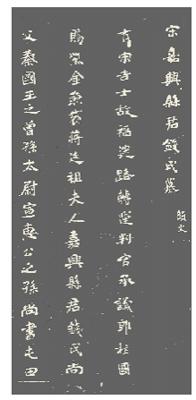 宋嘉興縣君錢氏墓
有宋寺士故福建路轉運判官承議郎柱國
賜緋金魚袋蔣廷祖夫人嘉興縣君錢氏尚
父秦國王之曾孫太尉宣惠公之孫尚書屯田